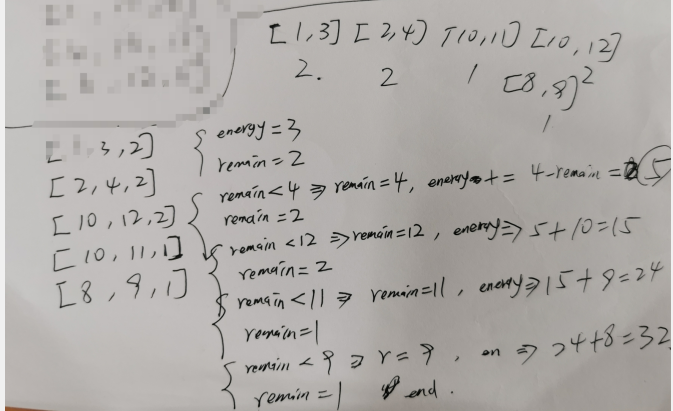 [1,3] [2,4) [10,11] [10,12]
2. 2 1 2
[8,9]
1
3,2] { energy=3
remain=2
[2,4,2]
remain<4 ⇒ remain=4, energy += 4-remain= 5
[10,12,2] { remain=2
remain<12 ⇒ remain=12, energy ⇒ 5+10=15
[10,11,1]
remain=2
[8,9,1]
remain<11 ⇒ remain=11, energy ⇒ 15+9=24
remain=1
{ remain<9 ⇒ r=9, en ⇒ 24+8=32
remain=1 end.